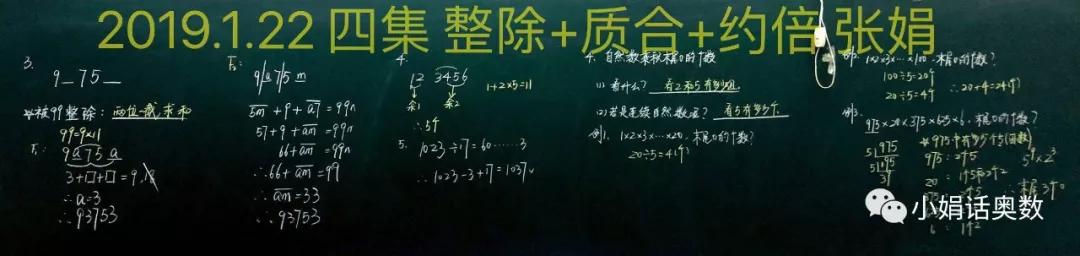 2019.1.22 四集 整除+质合+约倍 张娟
3.
9_75_
被99整除:两位一截求和
99=9×11
9a75a
3+□+□=9,18
∴a=3
∴93753
9|a7|5m
5m+9+a7=99n
57+9+am=99n
66+am=99n
∴66+am=99
∴am=33
∴93753
4.
12 3456
1+2×5=11
余1 余2
∴5个
5.
1023÷17=60……3
∴1023-3+17=1037
4. 自然数乘积末尾0的个数
(1) 看什么? 看2和5有多少组
(2) 若是连续自然数呢? 看5有多少个
例1. 1×2×3×…×20,末尾0的个数?
20÷5=4(个)
1×2×3×…×100,末尾0的个数?
100÷5=20个
20÷5=4个
∴20+4=24(个)
例3.
975×20×375×625×6,末尾0的个数?
5|975
5|195
39
975:2个5
20:1个5和2个2
6:1个2
∴末尾3个0
小娟话奥数